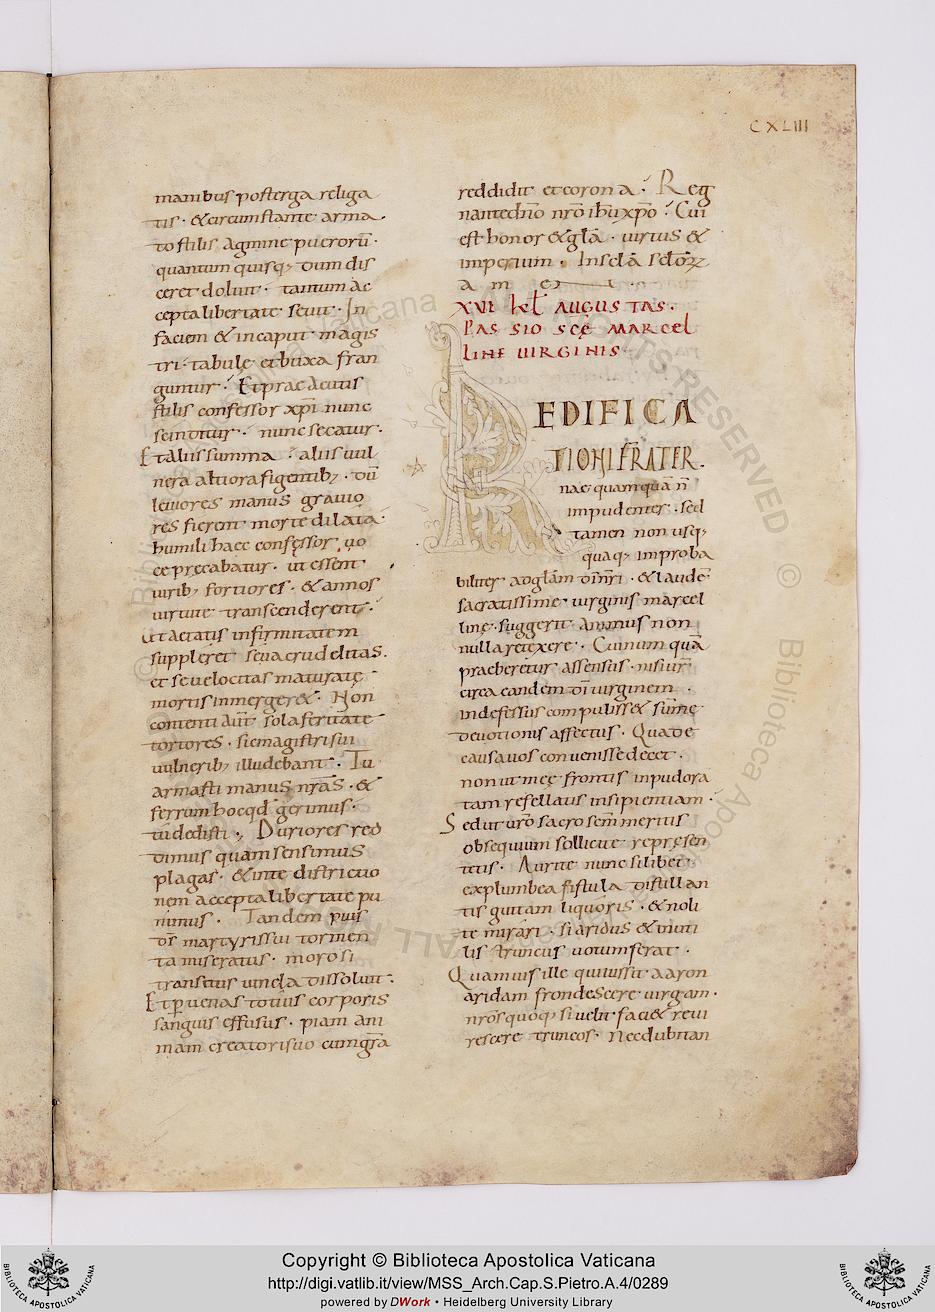 CXLIII
manibus post terga religa
tis · & circumstante arma
to stilis agmine puerorū ·
quantum quisq; dum dis
ceret doluit · tantum ac
cepta libertate seuit · In
faciem & in caput magis
tri · tabulę et buxa fran
guntur · Et praeacutis
stilis confessor xp̄i nunc
scinditur · nunc secatur ·
Et aliis summa · aliis uul
nera altiora figentib; · dū
leuiores manus grauio
res fierent morte dilata ·
humili haec confessor uo
ce pręcabatur · ut essent
uirib; fortiores · & annos
uirtute transcenderent ·
Ut aetatis infirmitatem
suppleret seua crudelitas.
et se uelocitas maturatę
mortis inmerger& · Non
contenti aūt sola feritate
tortores · sic magistri sui
uulnerib; illudebant · Tu
armasti manus nr̄as · &
ferrum hoc qd gerimus ·
tu dedisti · Duriores red
dimus quam sensimus
plagas · & in te districtio
nem accepta libertate pu
nimus · Tandem
martyris sui tormen
ta miseratus · morosi
transitus uincla dissoluit ·
Et p uenas totius corporis
sanguis effusus · piam ani
mam creatori suo cum gr̄a
reddidit et corona · Reg
nante dn̄o nr̄o ihū xp̄o · Cui
est honor & glā · uirtus &
imperium · In sclā sclōꝝ
amen
XVI kl AUGUSTAS.
PASSIO SCĘ MARCEL
LINE UIRGINIS
REDIFICA
TIONI FRATER.
nae quamquā n̄
impudenter · sed
tamen non usq;
quaq; improba
biliter ad glām dn̄i nr̄i · & laudē
sacratissime uirginis marcel
linę · suggerit animus non
nulla retexere · Cui num quā
praeberetur assensus · nisi ur̄
circa eandem dī uirginem ·
indefessus compuliss& sūmę
deuotionis affectus · Qua de
causa uos conuenisse decet ·
non ut meę frontis inpudora
tam refellatis insipientiam ·
Sed ut ur̄o sacrosem meritis
obsequium sollicite repręsen
tetis · Aurite nunc si libet
ex plumbea fistula distillan
tis guttam liquoris · & noli
te mirari · si aridus & muti
lis truncus uotum ferat ·
Quamuis ille qui iussit aaron
aridam frondescere uirgam ·
nr̄os quoq; si uelit faci& reui
rescere truncos · Nec dubitan
Copyright © Biblioteca Apostolica Vaticana
http://digi.vatlib.it/view/MSS_Arch.Cap.S.Pietro.A.4/0289
powered by DWork • Heidelberg University Library
BIBLIOTECA APOSTOLICA VATICANA
BIBLIOTECA APOSTOLICA VATICANA